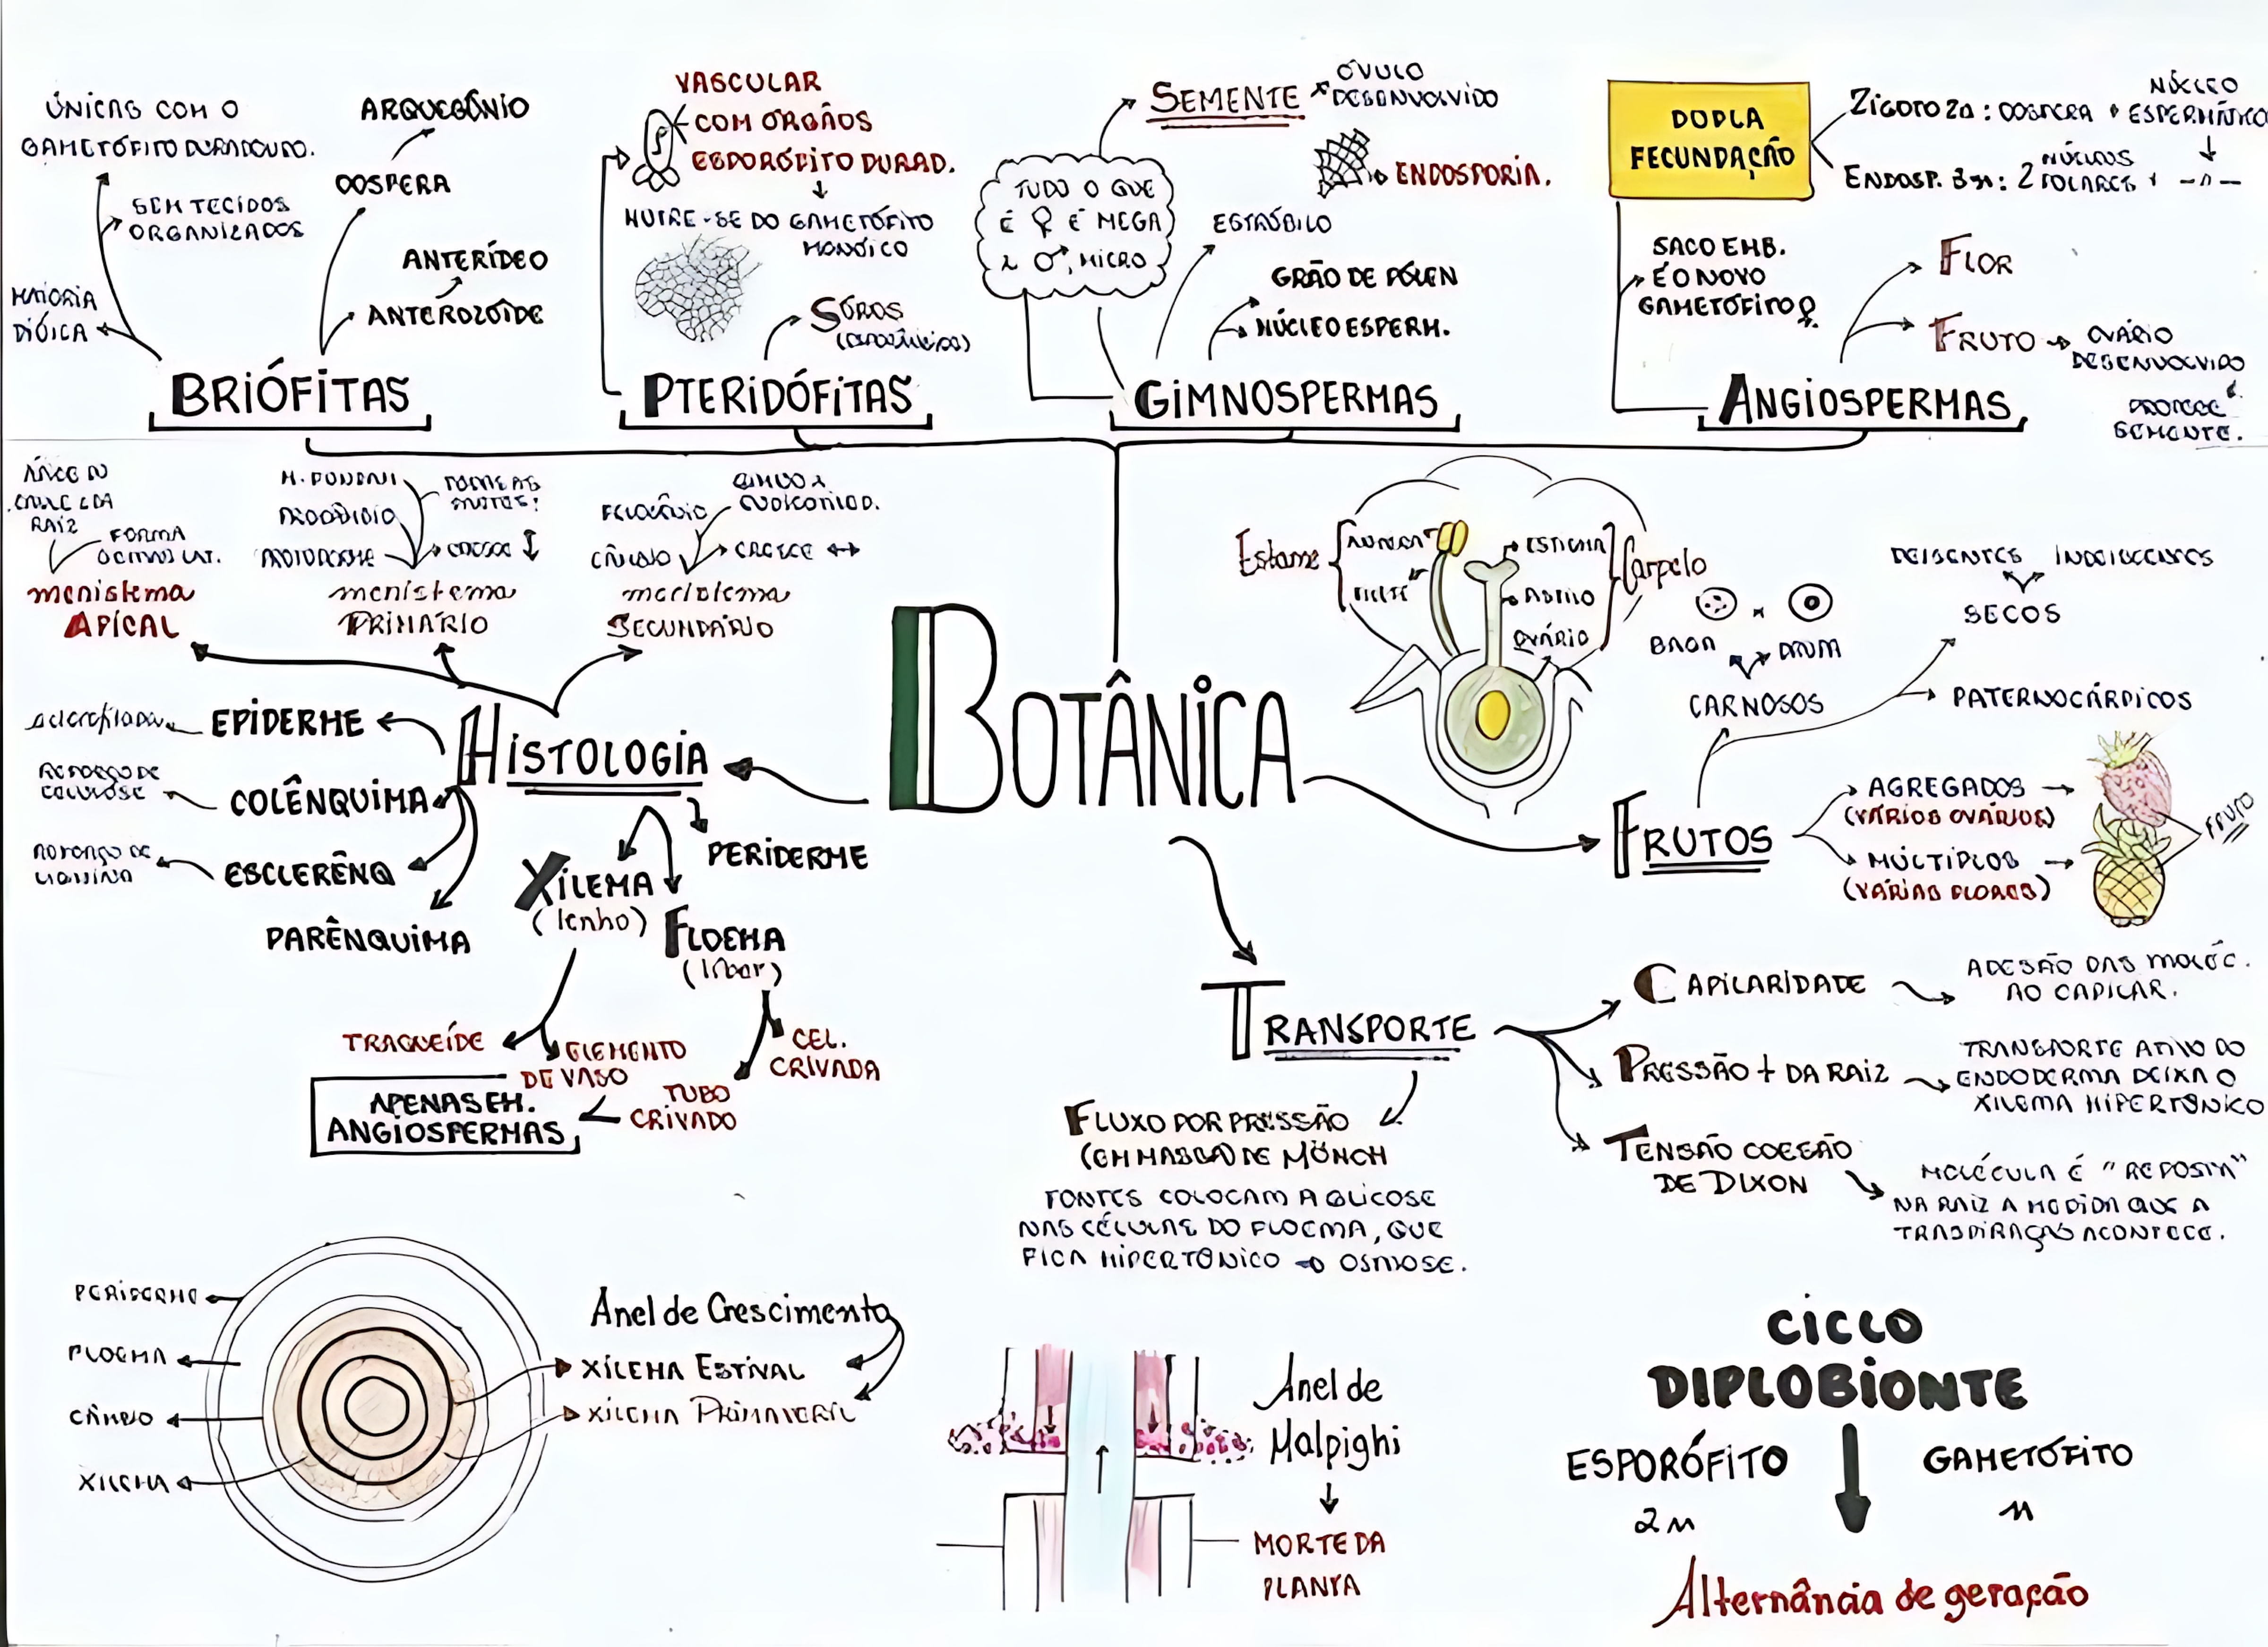 ÚNICAS COM O
GAMETÓFITO DURADOURO.
SEM TECIDOS
ORGANIZADOS
MAIORIA
DIÓICA
ARQUEGÔNIO
OOSFERA
ANTERÍDEO
ANTEROZÓIDE
BRIÓFITAS
VASCULAR
COM ORGÃOS
ESPORÓFITO DURAD.
NUTRE-SE DO GAMETÓFITO
MONÓICO
SOROS
PTERIDÓFITAS
SEMENTE
ÓVULO
DESENVOLVIDO
ENDOSPORIA.
TUDO O QUE
É ♀ É MEGA
♂, MICRO
ESTRÓBILO
GRÃO DE PÓLEN
NÚCLEO ESPERM.
GIMNOSPERMAS
DUPLA
FECUNDAÇÃO
ZIGOTO 2n: OOSFERA + NÚCLEO
ESPERMÁTICO
ENDOSP. 3n: 2 NÚCLEOS
POLARES + -n-
SACO EMB.
É O NOVO
GAMETÓFITO ♀
FLOR
FRUTO
OVÁRIO
DESENVOLVIDO
PROTEGE
SEMENTE.
ANGIOSPERMAS
RAIZ
FORMA
GEMAS LAT.
meristema
APICAL
M. FUNDAM
PROTODERME
CRESCE ↕
meristema
PRIMÁRIO
FELOGÊNIO
CÂMBIO
CRESCE ↔
meristema
SECUNDÁRIO
Estame
ANTERA
FILETE
ESTIGMA
ESTILO
OVÁRIO
Carpelo
BAGA
DRUPA
CARNOSOS
DEISCENTES
INDEISCENTES
SECOS
PATERNOCÁRPICOS
AGREGADOS
(VÁRIOS OVÁRIOS)
MÚLTIPLOS
(VÁRIAS FLORES)
FRUTO
FRUTOS
BOTÂNICA
HISTOLOGIA
EPIDERME
COLÊNQUIMA
REFORÇO DE
CELULOSE
ESCLERÊNQ
REFORÇO DE
LIGNINA
PARÊNQUIMA
PERIDERME
XILEMA
(lenho)
FLOEMA
(líber)
TRAQUEÍDE
ELEMENTO
DE VASO
CEL.
CRIVADA
TUBO
CRIVADO
APENAS EM.
ANGIOSPERMAS
TRANSPORTE
CAPILARIDADE
ADESÃO DAS MOLÉC.
AO CAPILAR.
PRESSÃO + DA RAIZ
TRANSPORTE ATIVO DO
ENDODERMA DEIXA O
XILEMA HIPERTÔNICO
TENSÃO COESÃO
DE DIXON
MOLÉCULA É "REPOSTA"
NA RAIZ A MEDIDA QUE A
TRASPIRAÇÃO ACONTECE.
FLUXO POR PRESSÃO
(EM MASSA) DE MÖNCH
FONTES COLOCAM A GLICOSE
NAS CÉLULAS DO FLOEMA, QUE
FICA HIPERTÔNICO → OSMOSE.
PERIDERME
FLOEMA
CÂMBIO
XILEMA
Anel de Crescimento
XILEMA ESTIVAL
XILEMA PRIMAVERIL
Anel de
Malpighi
MORTE DA
PLANTA
CICLO
DIPLOBIONTE
ESPORÓFITO
2n
GAMETÓFITO
n
Alternância de geração